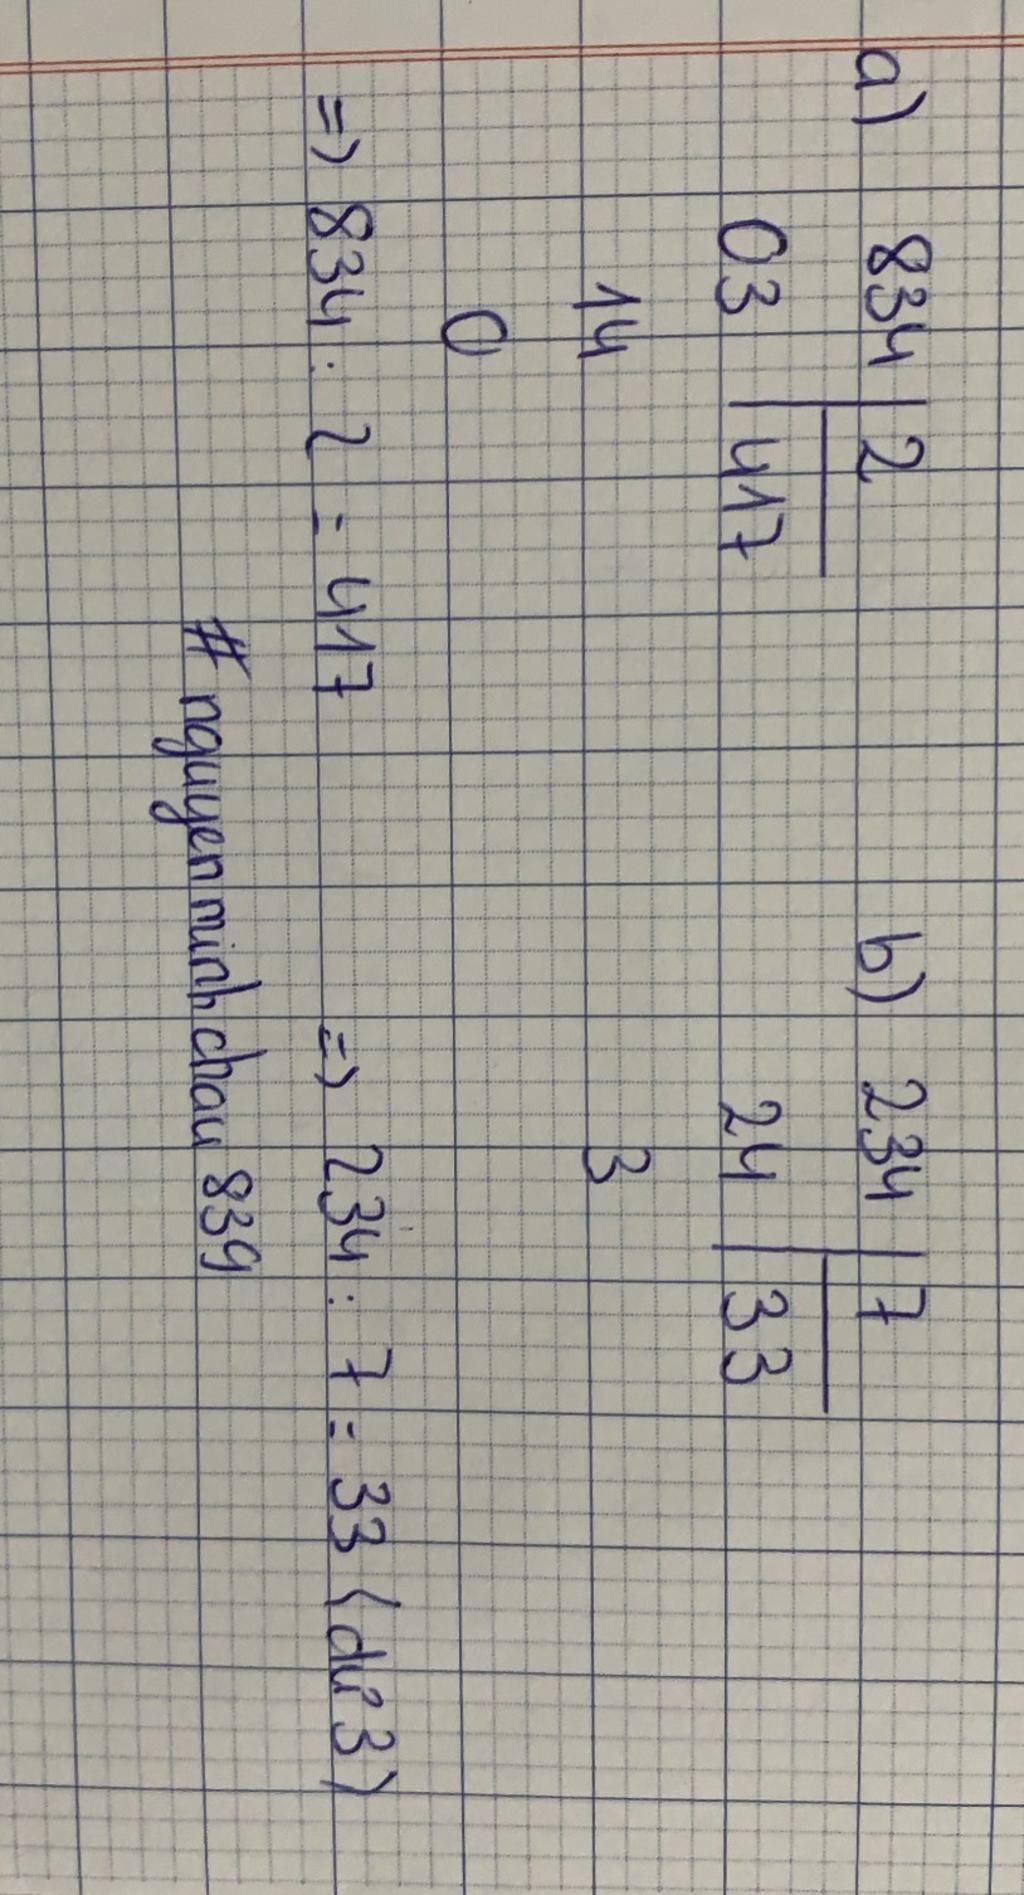 a) 834 | 2 b) 234 | 7
03 | 417 24 | 33
14 3
0
=> 834 : 2 = 417 => 234 : 7 = 33 (dư 3)
# nguyenminhchau 839